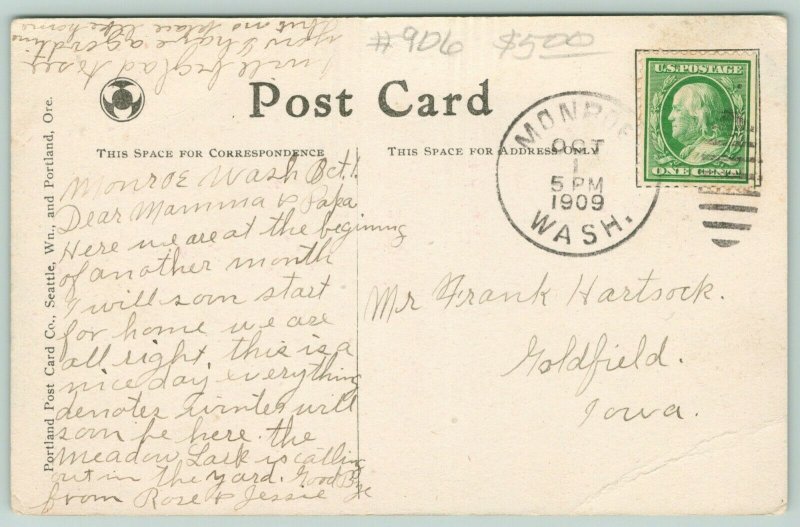 I will be glad to see
you & have a good time
but no place like home
#906 $5.00
Post Card
THIS SPACE FOR CORRESPONDENCE
THIS SPACE FOR ADDRESS ONLY
U.S. POSTAGE
ONE CENT
MONROE
OCT
1
5 PM
1909
WASH.
Portland Post Card Co., Seattle, Wn., and Portland, Ore.
Monroe Wash Oct. 1.
Dear Mamma & Papa
Here we are at the begining
of another month
I will soon start
for home we are
all right. this is a
nice day. everything
denotes Winter will
soon be here. the
Meadow Lark is calling
out in the yard. Good Bye
from Rose & Jessie
Mr Frank Hartsock.
Goldfield.
Iowa.